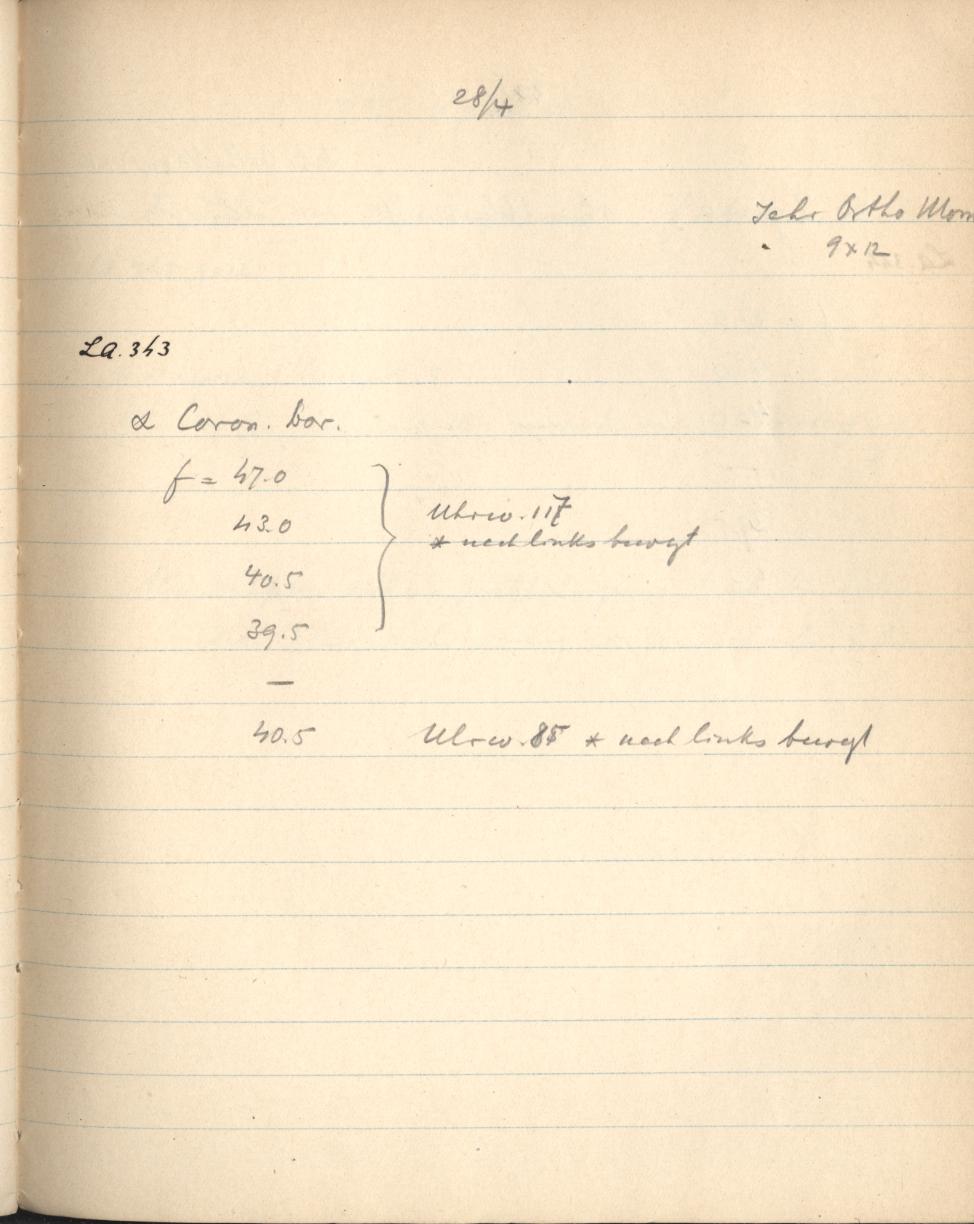 28/4
Jahr Ortho
9x12
La. 343
α Coron. bor.
f = 47.0
43.0
Uhrw. 117
* nach links bewegt
40.5
39.5
—
40.5 Uhrw. 85 * nach links bewegt